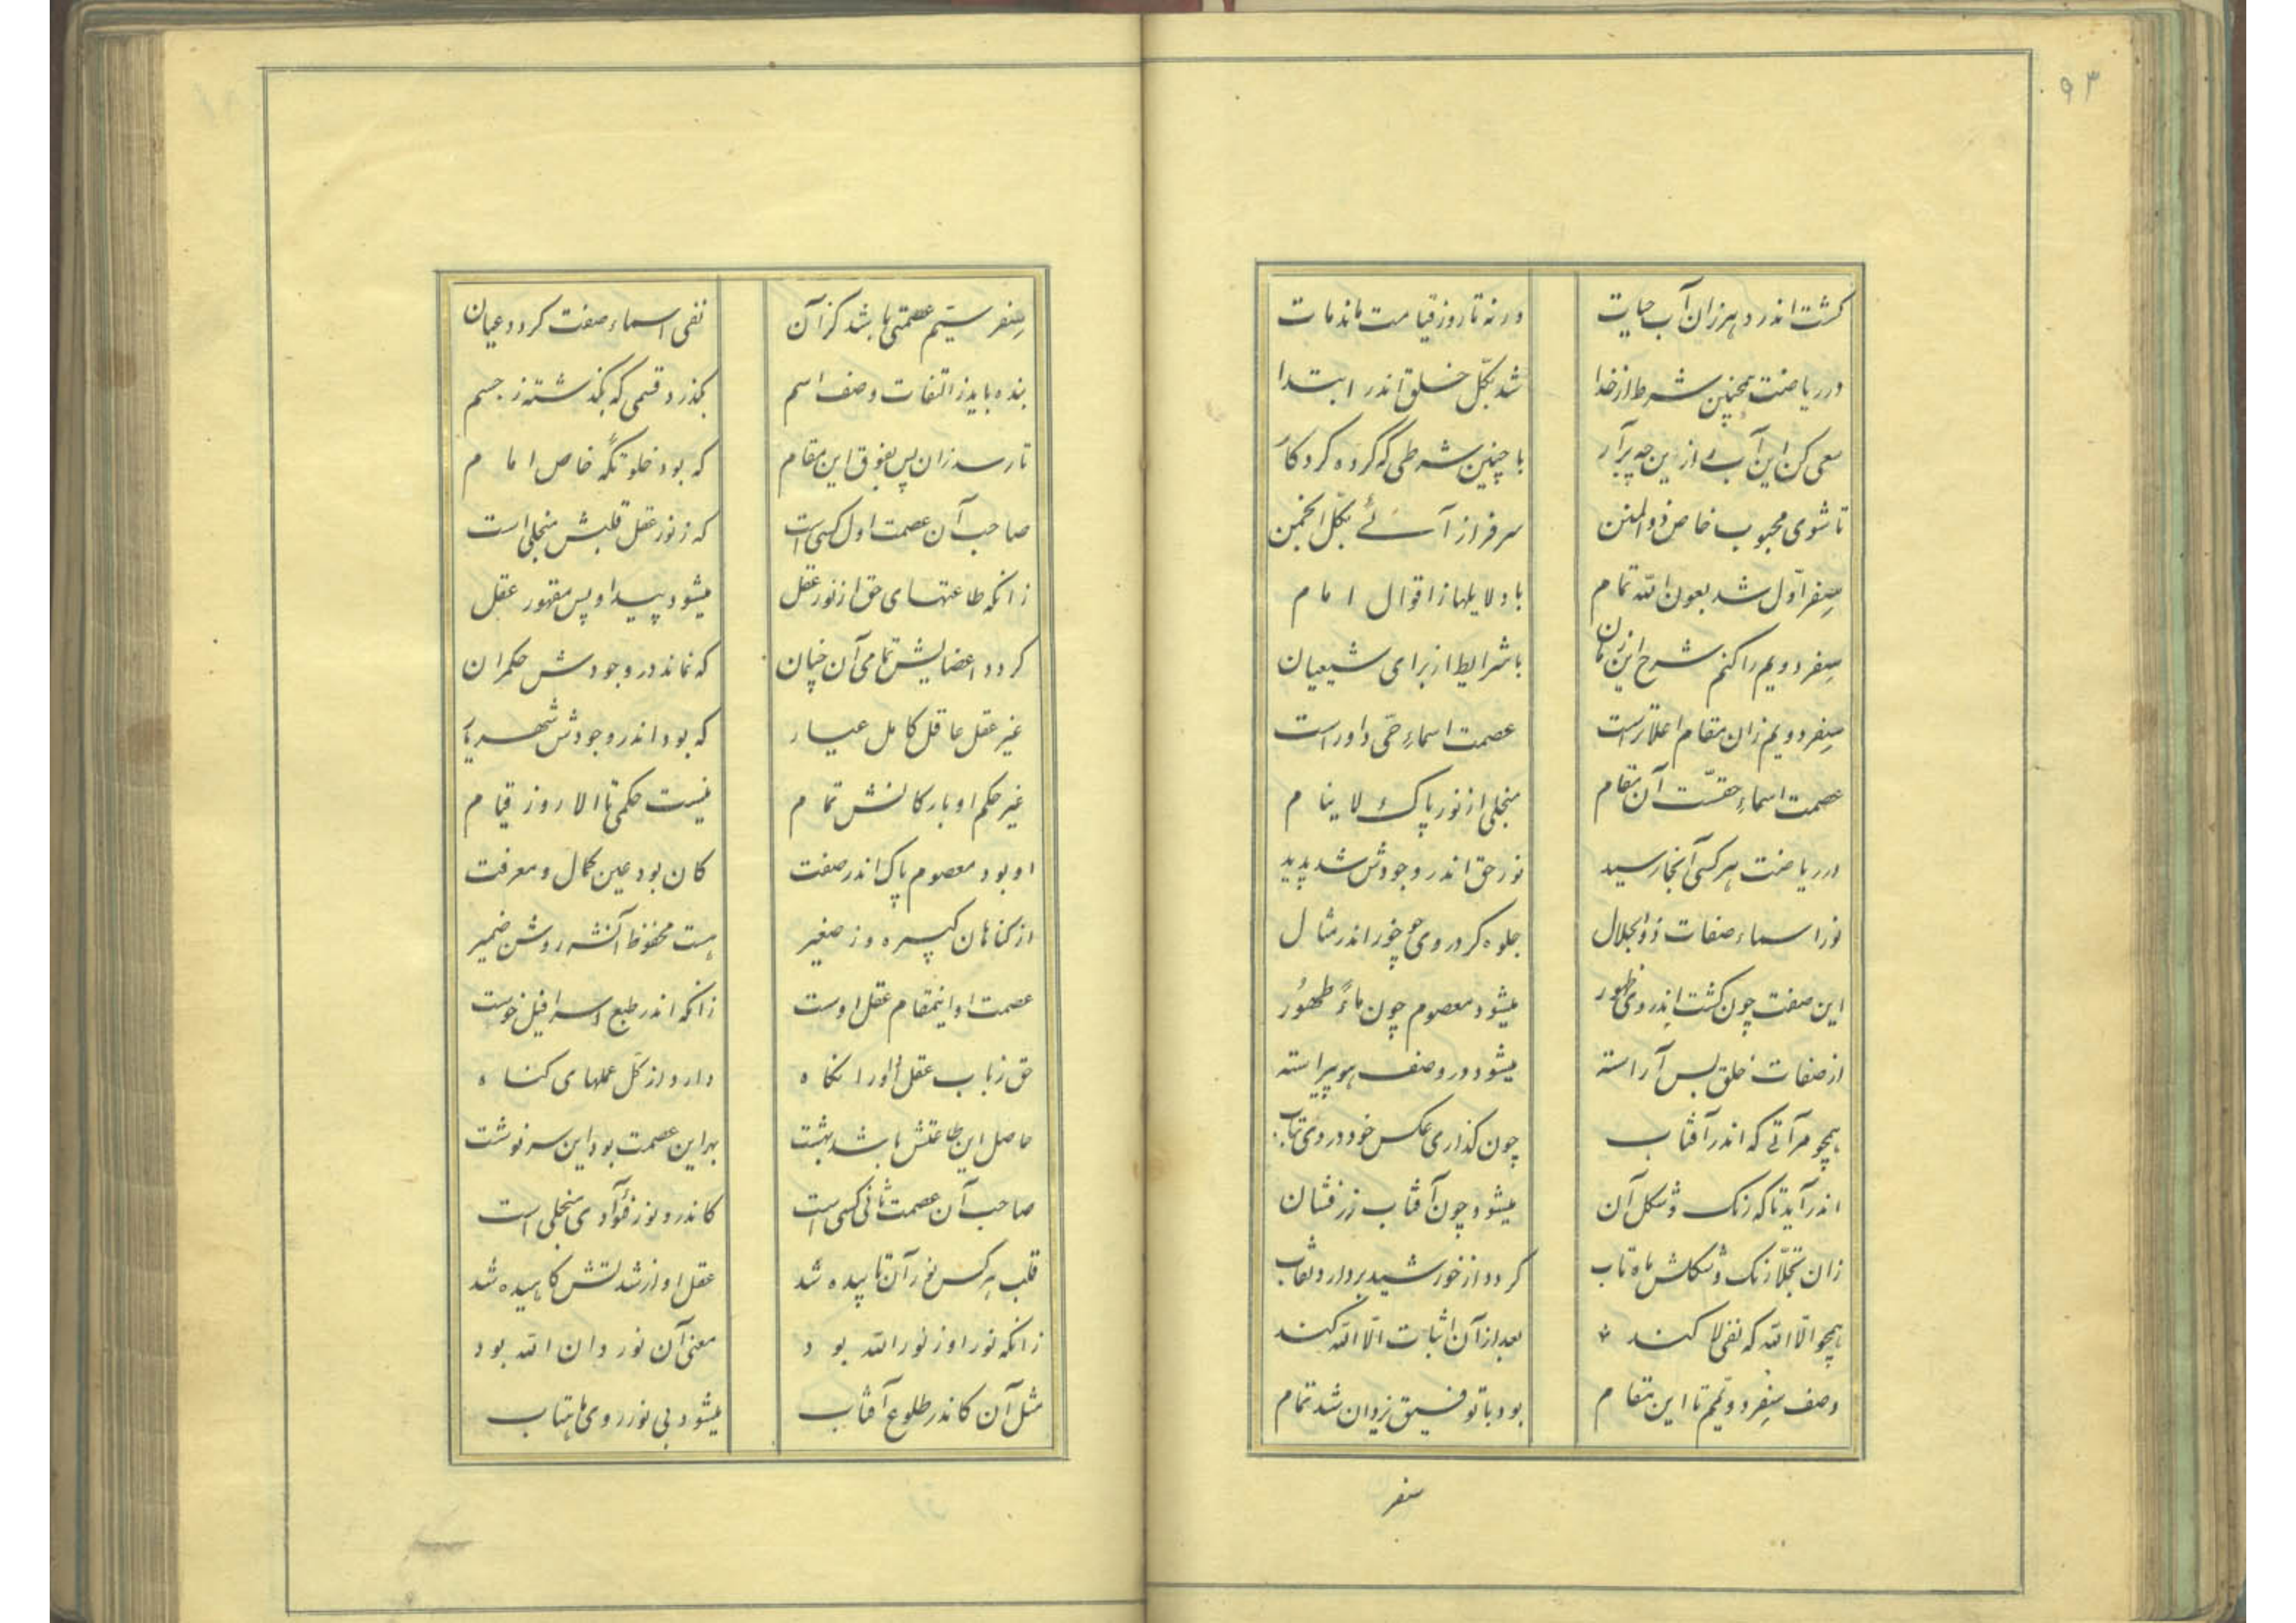 ۹۳
کشت اندر دهر زان آب حیات
ورنه تا روز قیامت ماند مات
در ریاضت همچنین شرط از خدا
شد بکلّ خلق اندر ابتدا
سعی کن این آب را زین چه برآر
با چنین شرطی که کرده کردکار
تا شوی محبوب خاص ذوالمنن
سرفراز آئے بکل انجمن
سِفر اوّل شد بعون الله تمام
با دلایلها ز اقوال امام
سِفر دویم را کنم شرح این زمان
با شرایط از برای شیعیان
سِفر دویم زان مقام اعلاتر است
عصمت اسماءِ حیّ داور است
عصمت اسماءِ حقّست آن مقام
منجلی از نور پاک لاینام
در ریاضت هر کسی آنجا رسید
نور حق اندر وجودش شد پدید
نور اسماء صفات ذوالجلال
جلوه کر در وی چو خور اندر مثال
این صفت چون کشت اندر وی ظهور
میشود معصوم چون ماءً طهُور
از صفات خلق بس آراسته
میشود در وصف هو پیراسته
همچو مرآتی که اندر آفتاب
چون کذاری عکس خود در وی بتاب
اندر آید تا که رنک و شکل آن
میشود چون آفتاب زرفشان
زان تجلّا رنک و شکلش ماه تاب
کردد از خورشید بردارد نقاب
همچو الّا الله که نفی لا کند
بعد از آن اثبات الّا الله کند
وصف سِفر دویّم تا این مقام
بود با توفیق یزدان شد تمام
سفر
سِفر سیّم عصمتی باشد کز آن
نفی اسماء صفت کردد عیان
بنده باید ز التفات وصف اسم
بکذرد قسمی که بکذشته ز جسم
تا رسد زان پس بفوق این مقام
که بود خلوتکه خاص امام
صاحب آن عصمت اول کسی است
که ز نور عقل قلبش منجلی است
زانکه طاعتهای حق از نور عقل
میشود پیدا و پس مقهور عقل
کردد اعضایش تمامی آن چنان
که نماند در وجودش حکمران
غیر عقل عاقل کامل عیار
که بود اندر وجودش شهریار
غیر حکم او بارکانش تمام
نیست حکمی تا الا روز قیام
او بود معصوم پاک اندر صفت
کان بود عین کمال و معرفت
از کناهان کبیره وز صغیر
هست محفوظ آنشه روشن ضمیر
عصمت او اینمقام عقل اوست
زانکه اندر طبع اسرافیل خوست
حق ز باب عقل او را نکاه
دارد از کلّ عملهای کناه
حاصل این طاعتش باشد بهشت
بهر این عصمت بود این سرنوشت
صاحب آن عصمت ثانی کسی است
کاندرو نور فؤآدی منجلی است
قلب هر کس نور آن تابیده شد
عقل او از شدتش کاهیده شد
زانکه نور او ز نور الله بود
معنی آن نور دان الله بود
مثل آن کاندر طلوع آفتاب
میشود بی نور روی ماهتاب